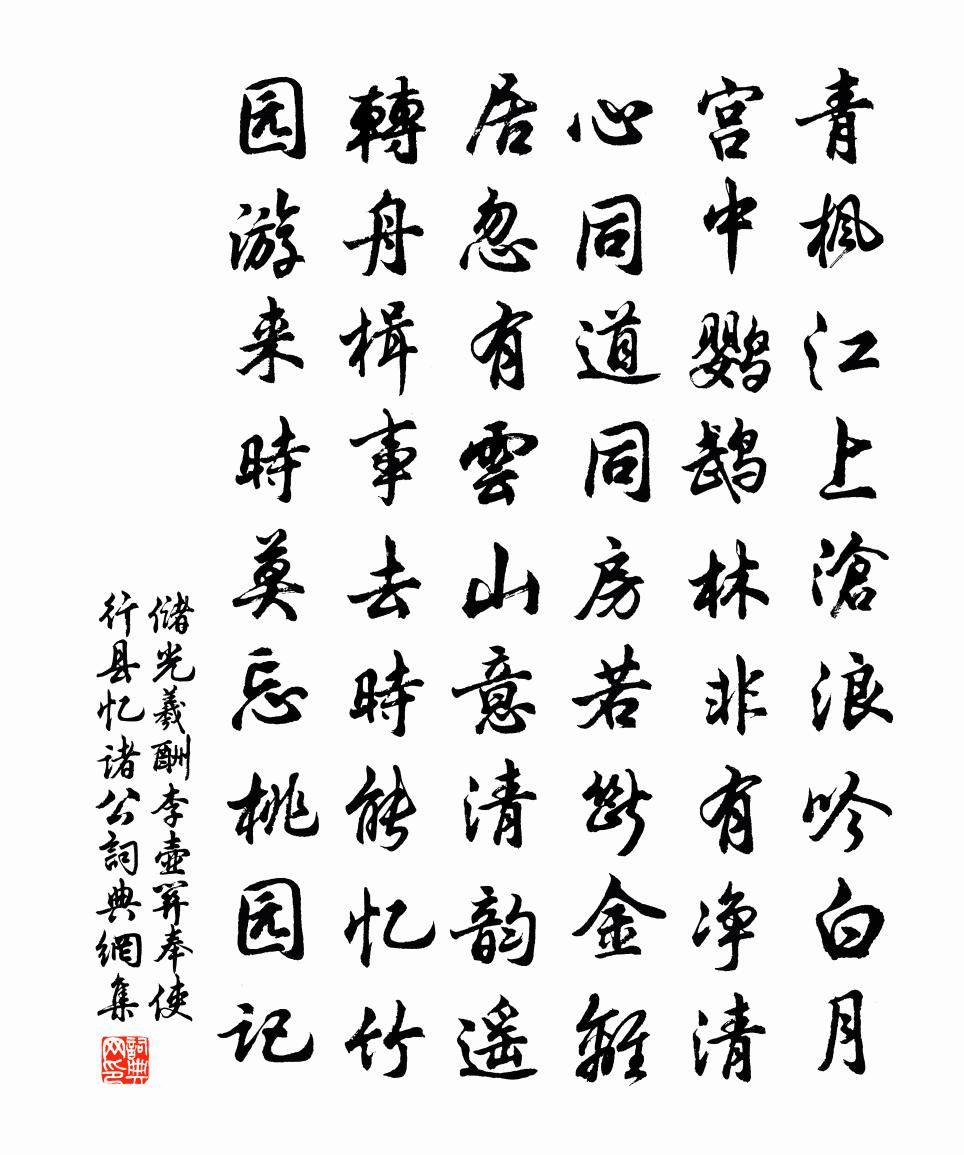 青楓江上滄浪吟白月
宫中鹦鹉林非有净清
心同道同房若断金離
居忽有雲山意清韵遥
轉舟楫事去時能忆竹
园游来時莫忘桃园记
儲光羲酬李壶関奉使
行县忆诸公詞典網集
詞典网印